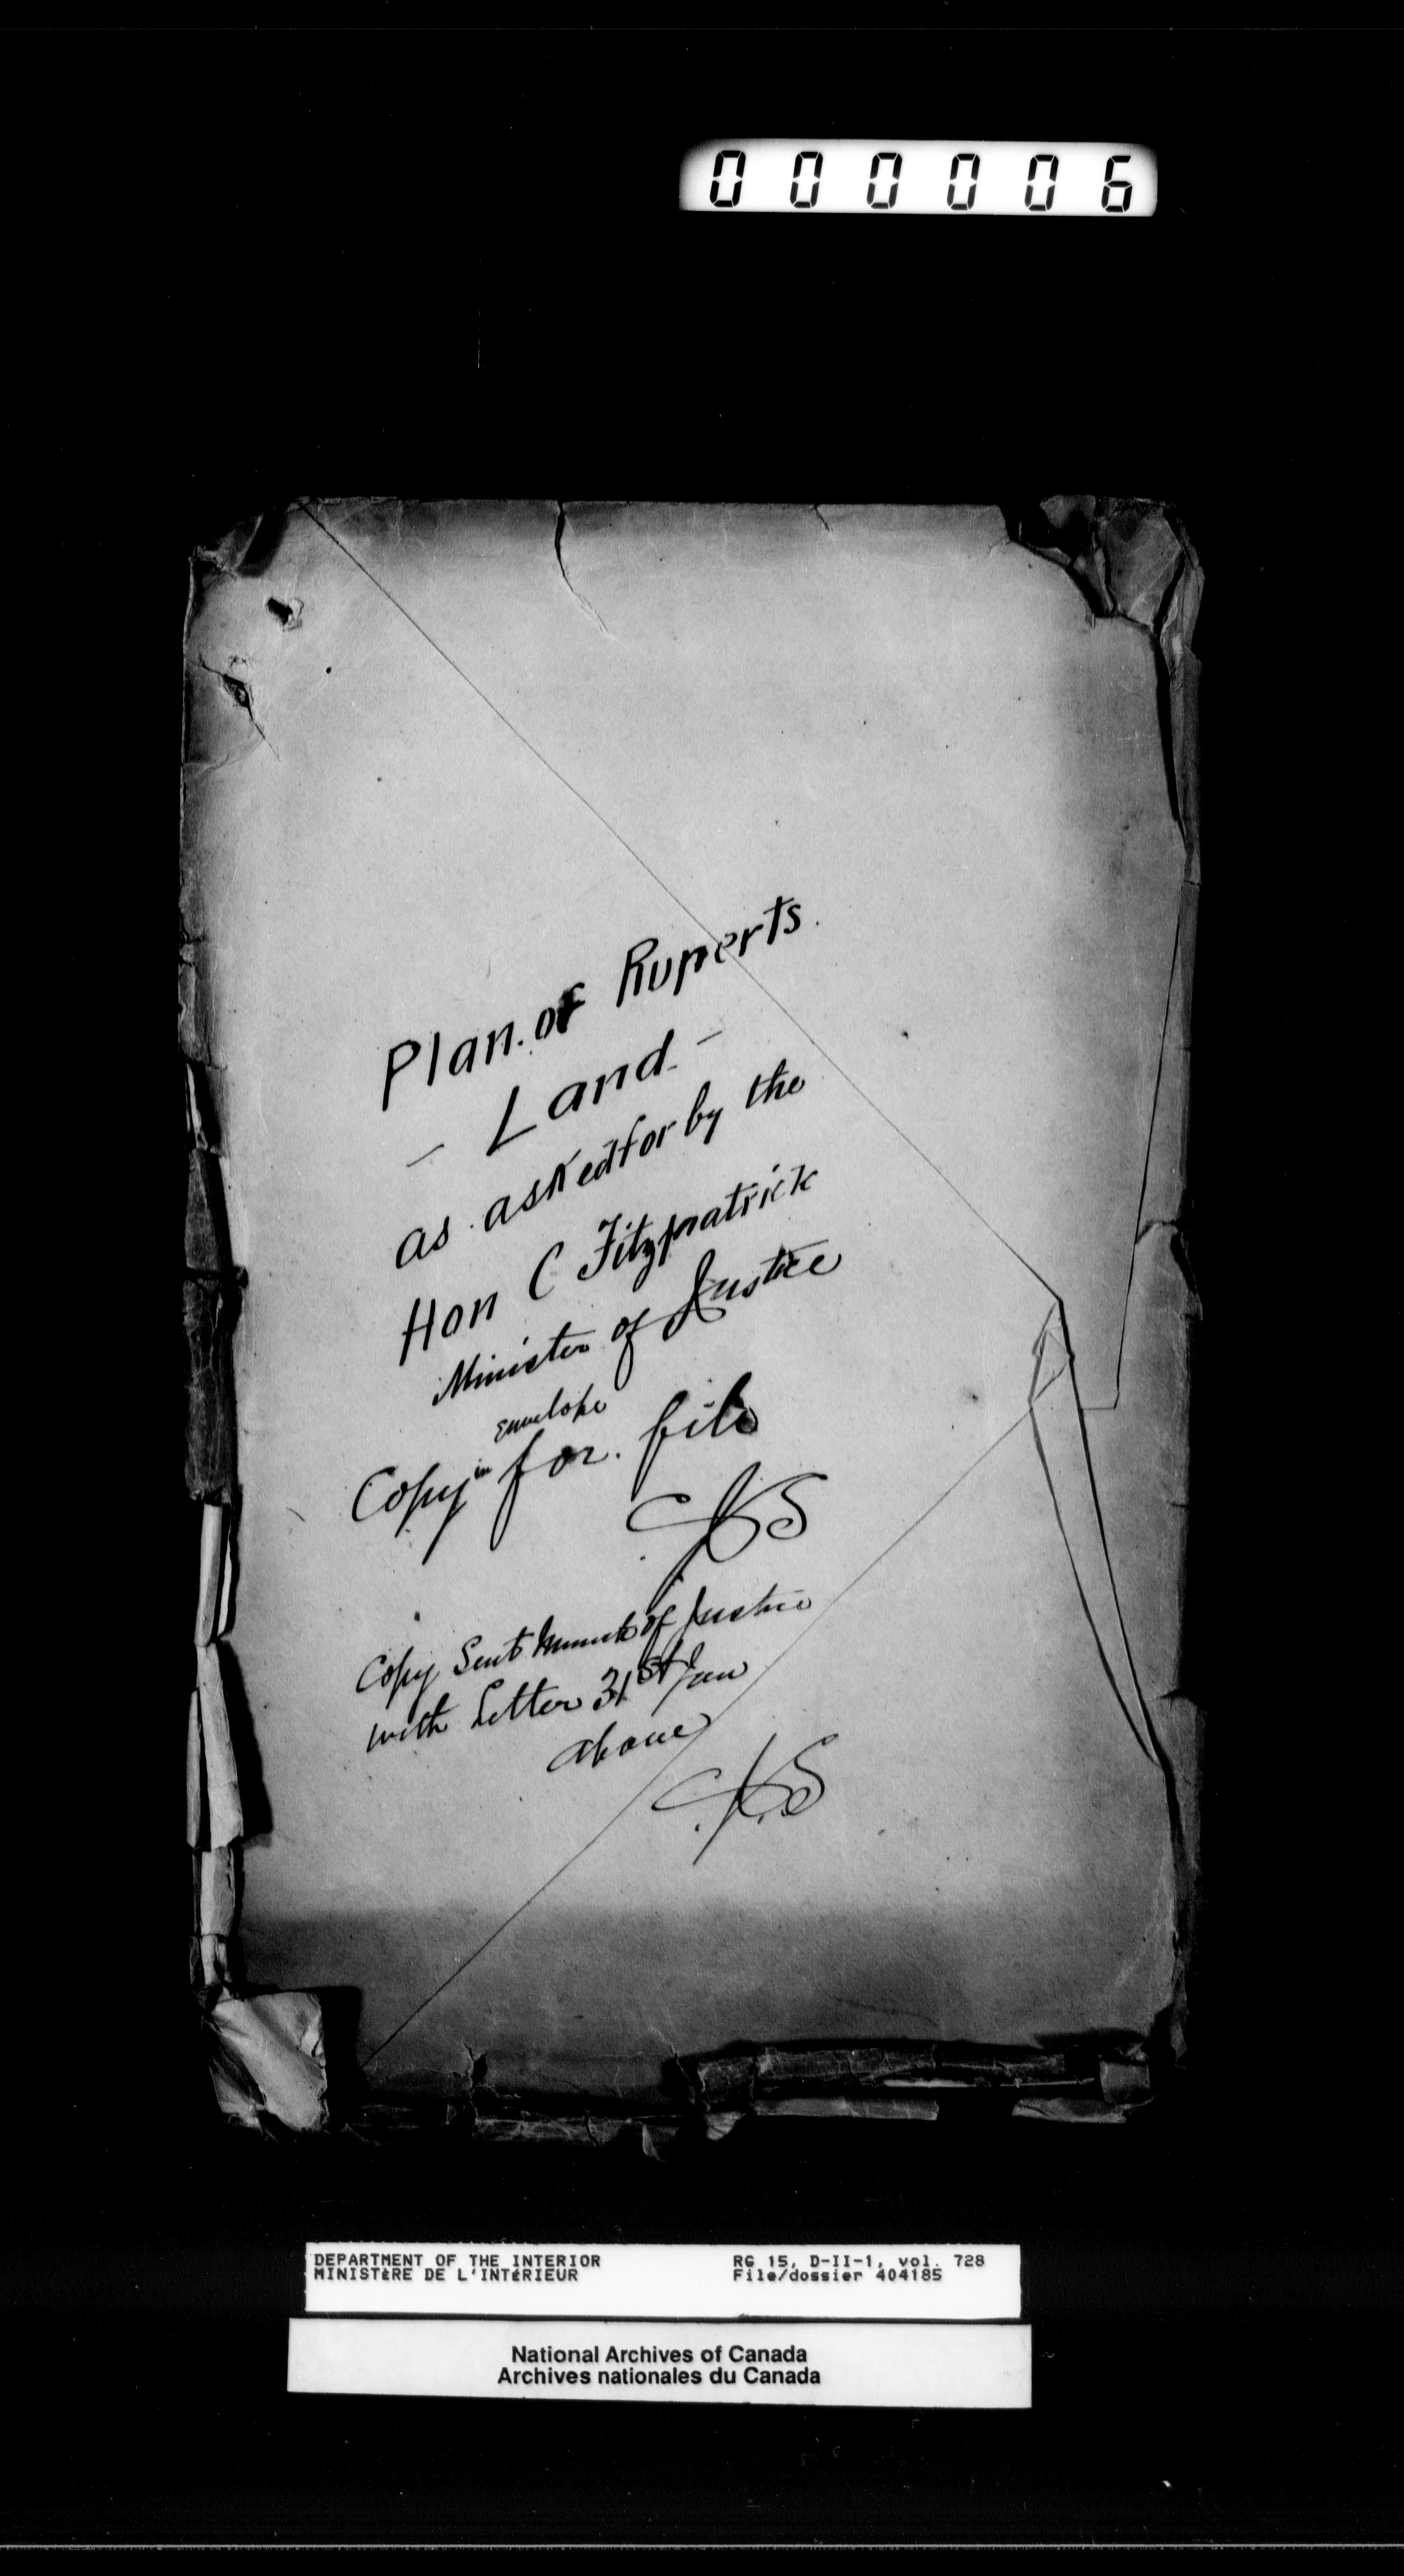 000006
Plan. of Ruperts.
- Land -
as asked for by the
Hon C Fitzpatrick
Minister of Justice
envelope
Copy in for. file
Copy Sent of Justice
with Letter 31st Jan
above
DEPARTMENT OF THE INTERIOR
MINISTÈRE DE L'INTÉRIEUR
RG 15, D-II-1, vol. 728
File/dossier 404185
National Archives of Canada
Archives nationales du Canada